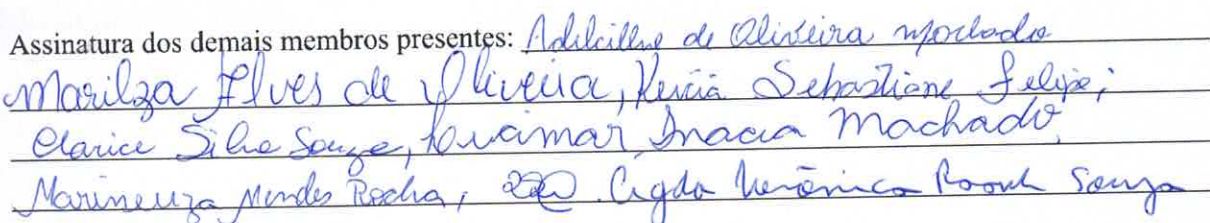 Assinatura dos demais membros presentes: de Oliveira Machado
Marilza Alves de Oliveira, Sebastiane Felipe;
Clarice Silva Souza, Lucimar Inacia Machado,
Marineuza Mendes Rocha, Agda Verônica Souza